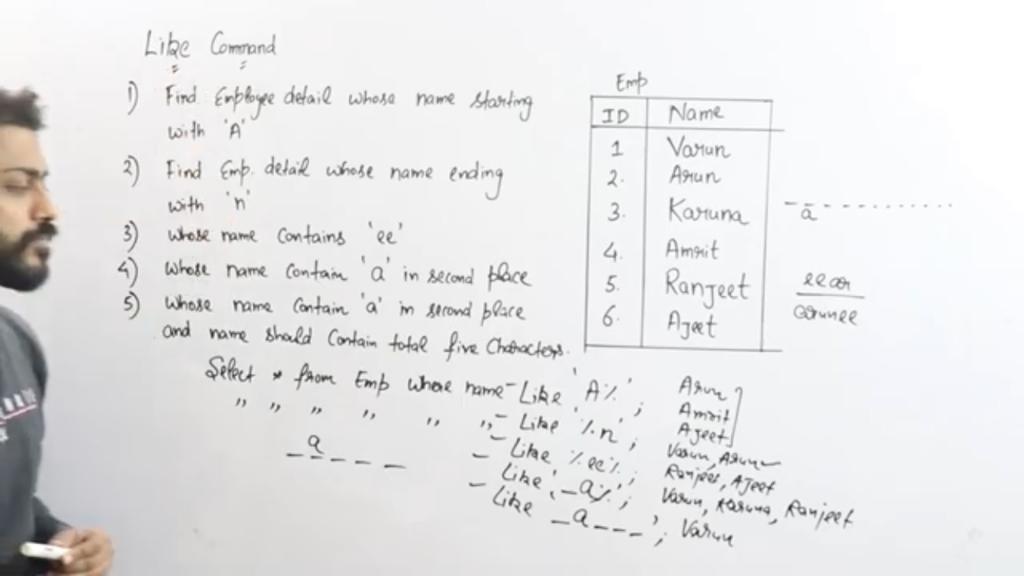 Like Command
1) Find Employee detail whose name starting
with 'A'
2) Find Emp. detail whose name ending
with 'n'
3) whose name Contains 'ee'
4) whose name Contain 'a' in second place
5) whose name Contain 'a' in second place
and name should Contain total five Characters.
Emp
ID Name
1 Varun
2. Arun
3. Karuna
4. Amrit
5. Ranjeet
6. Ajeet
_ a - - - - - - -
Select * from Emp whose name - Like 'A%'; Arun
" " " " " " - Like '%n'; Amrit
Ajeet
- Like '%ee%'; Varun, Arun
- Like '_a%'; Ranjeet, Ajeet
Varun, Karuna, Ranjeet
- Like '_a___'; Varun
_ a _ _ _